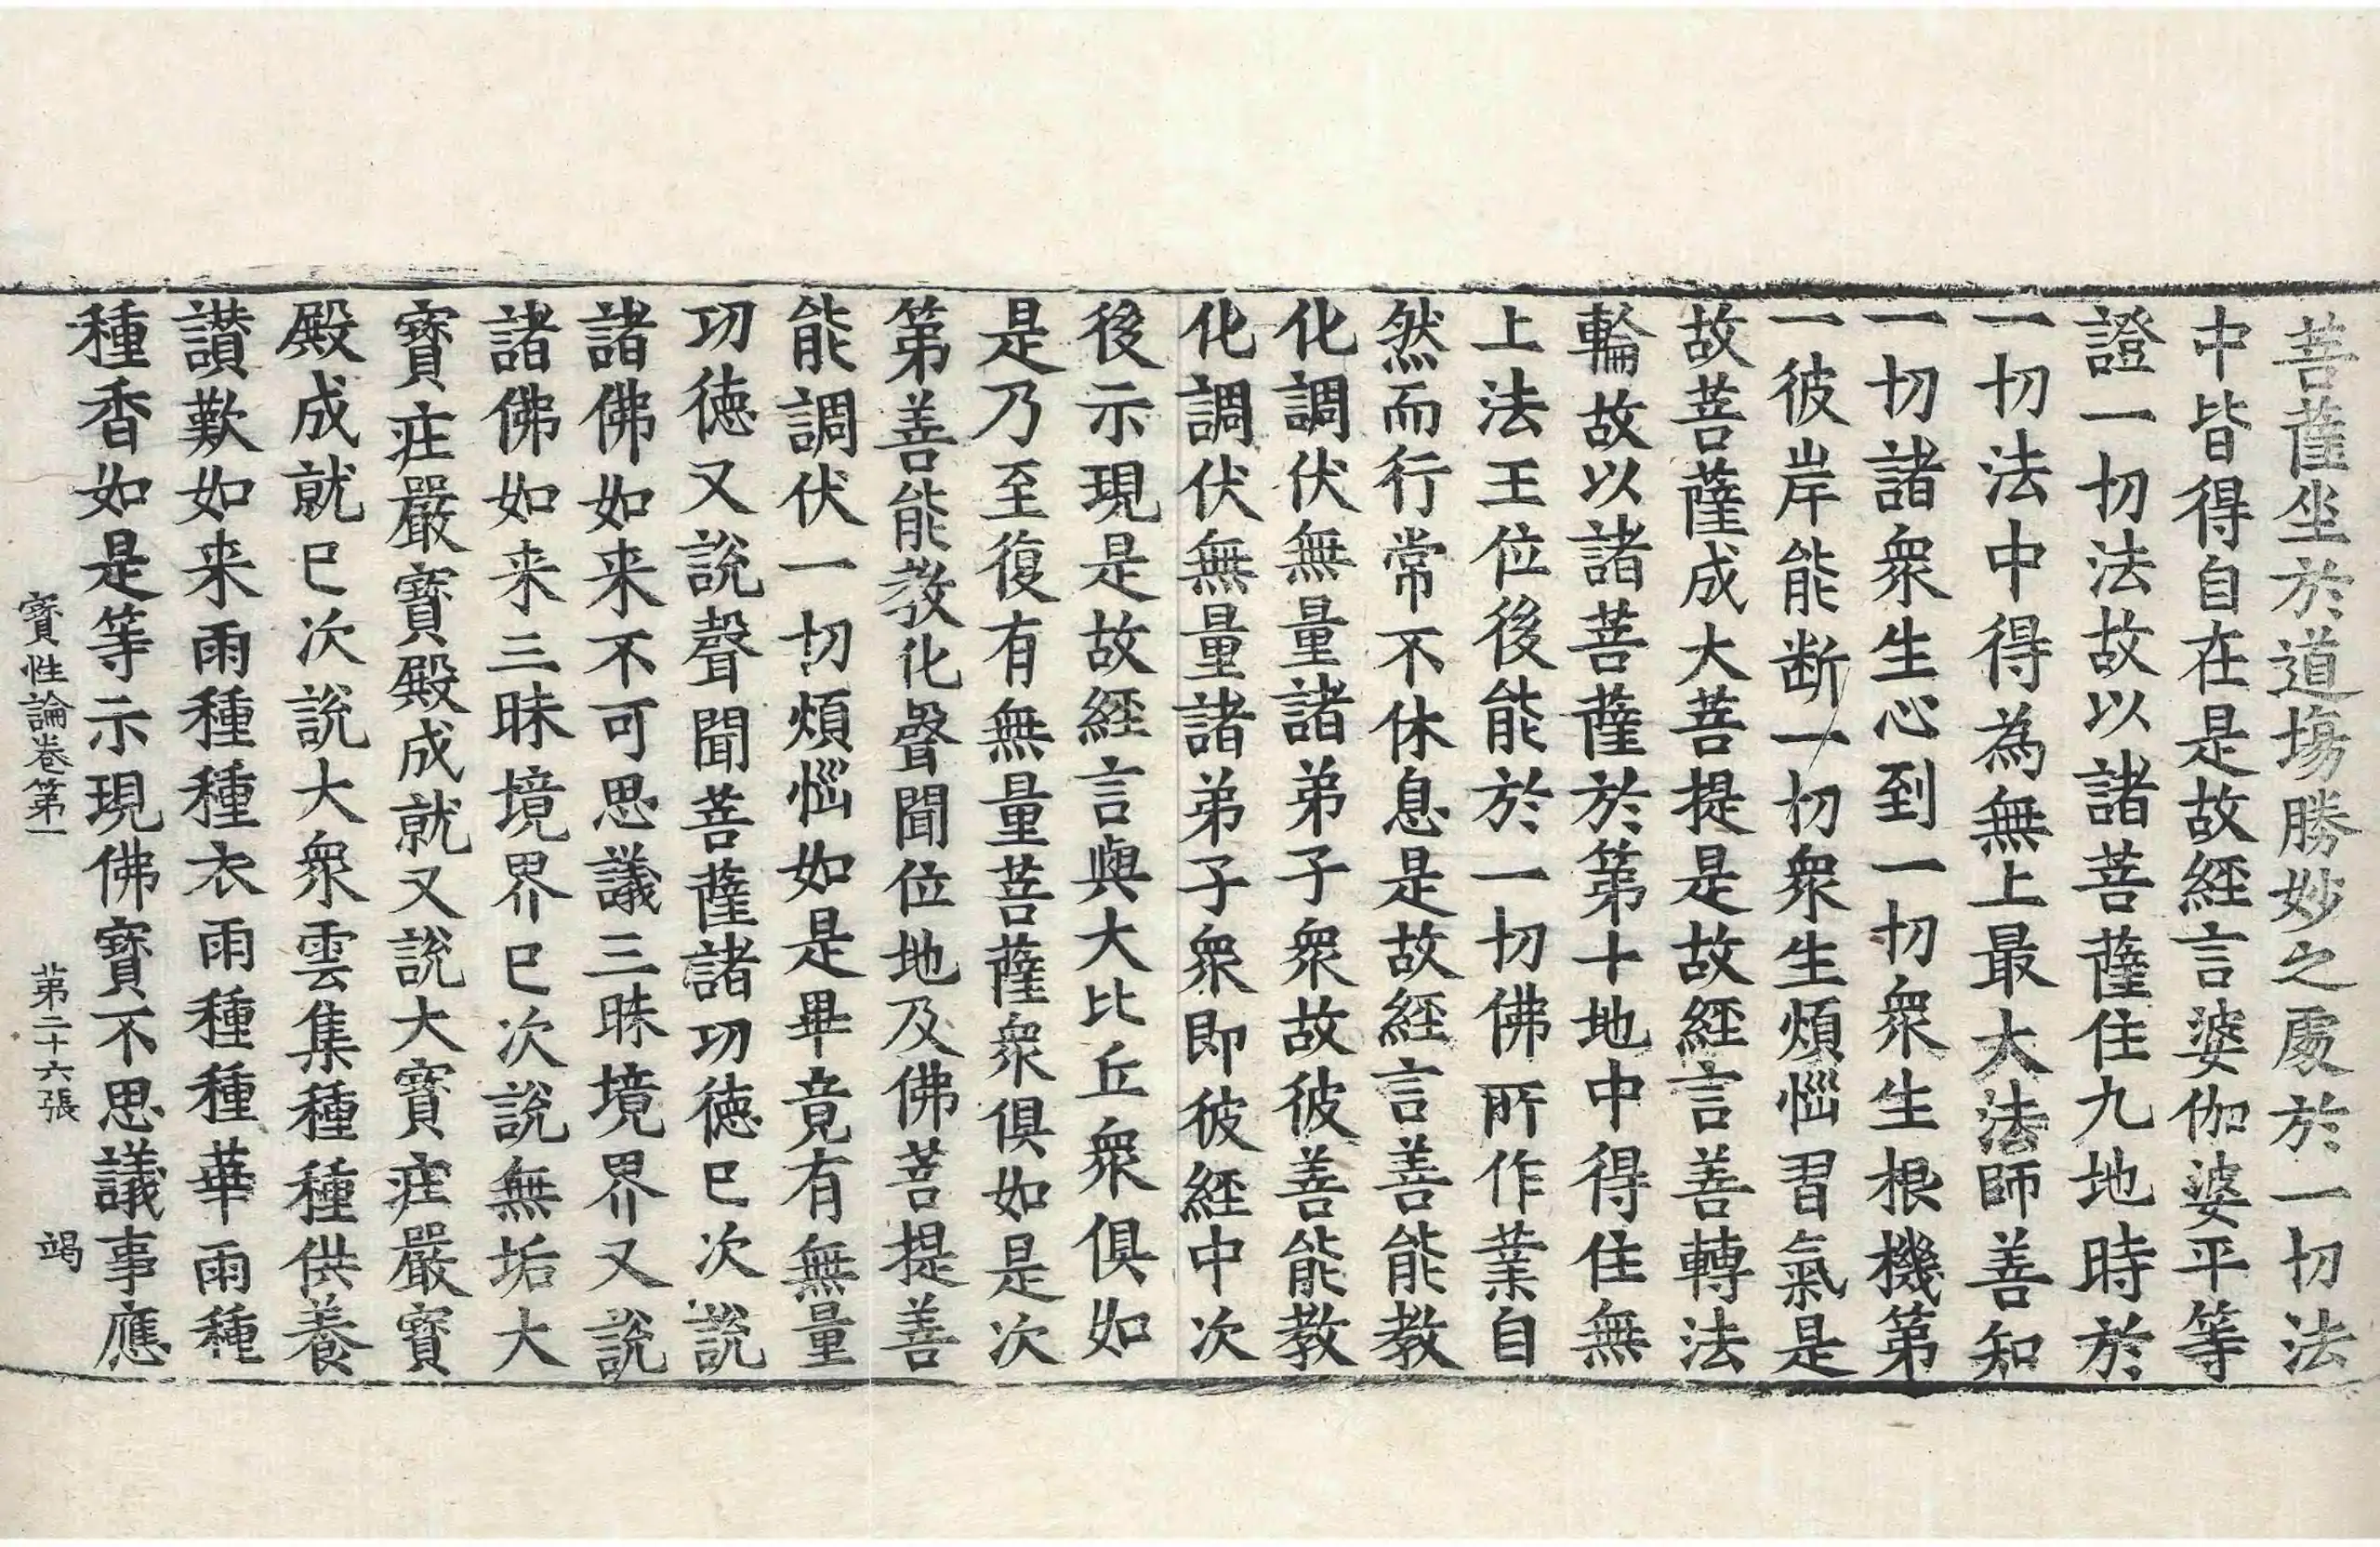 菩薩坐於道場勝妙之處於一切法
中皆得自在是故經言婆伽婆平等
證一切法故以諸菩薩住九地時於
一切法中得為無上最大法師善知
一切諸衆生心到一切衆生根機第
一彼岸能断一切衆生煩惱習氣是
故菩薩成大菩提是故經言善轉法
輪故以諸菩薩於第十地中得住無
上法王位後能於一切佛所作業自
然而行常不休息是故經言善能教
化調伏無量諸弟子衆故彼善能教
化調伏無量諸弟子衆即彼經中次
後示現是故經言與大比丘衆俱如
是乃至復有無量菩薩衆俱如是次
第善能教化聲聞位地及佛菩提善
能調伏一切煩惱如是畢竟有無量
功徳又說聲聞菩薩諸功徳已次說
諸佛如来不可思議三昧境界又說
諸佛如来三昧境界已次說無垢大
寶疘嚴寶殿成就又說大寶疘嚴寶
殿成就已次說大衆雲集種種供養
讃歎如来雨種種衣雨種種華雨種
種香如是等示現佛寶不思議事應
寶性論卷第一 苐二十六張 竭